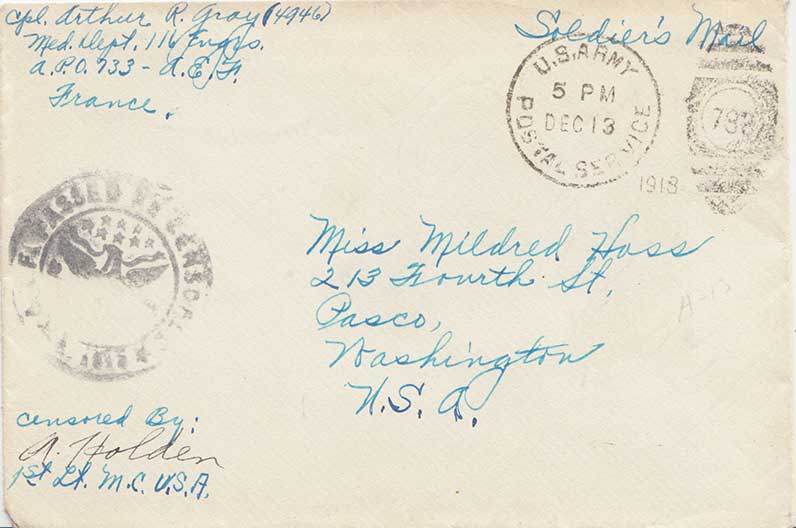 Cpl. Arthur R. Gray (4946)
Med. Dept. 116 Engrs.
A.P.O. 733 - A.E.F.
France.
Soldier's Mail
U.S. ARMY
5 PM
DEC 13
POSTAL SERVICE
1918
PASSED BY CENSOR
Miss Mildred Hoss
213 Fourth St,
Pasco,
Washington
U.S.A.
Censored By:
A. Holden
1st Lt. M.C. U.S.A.